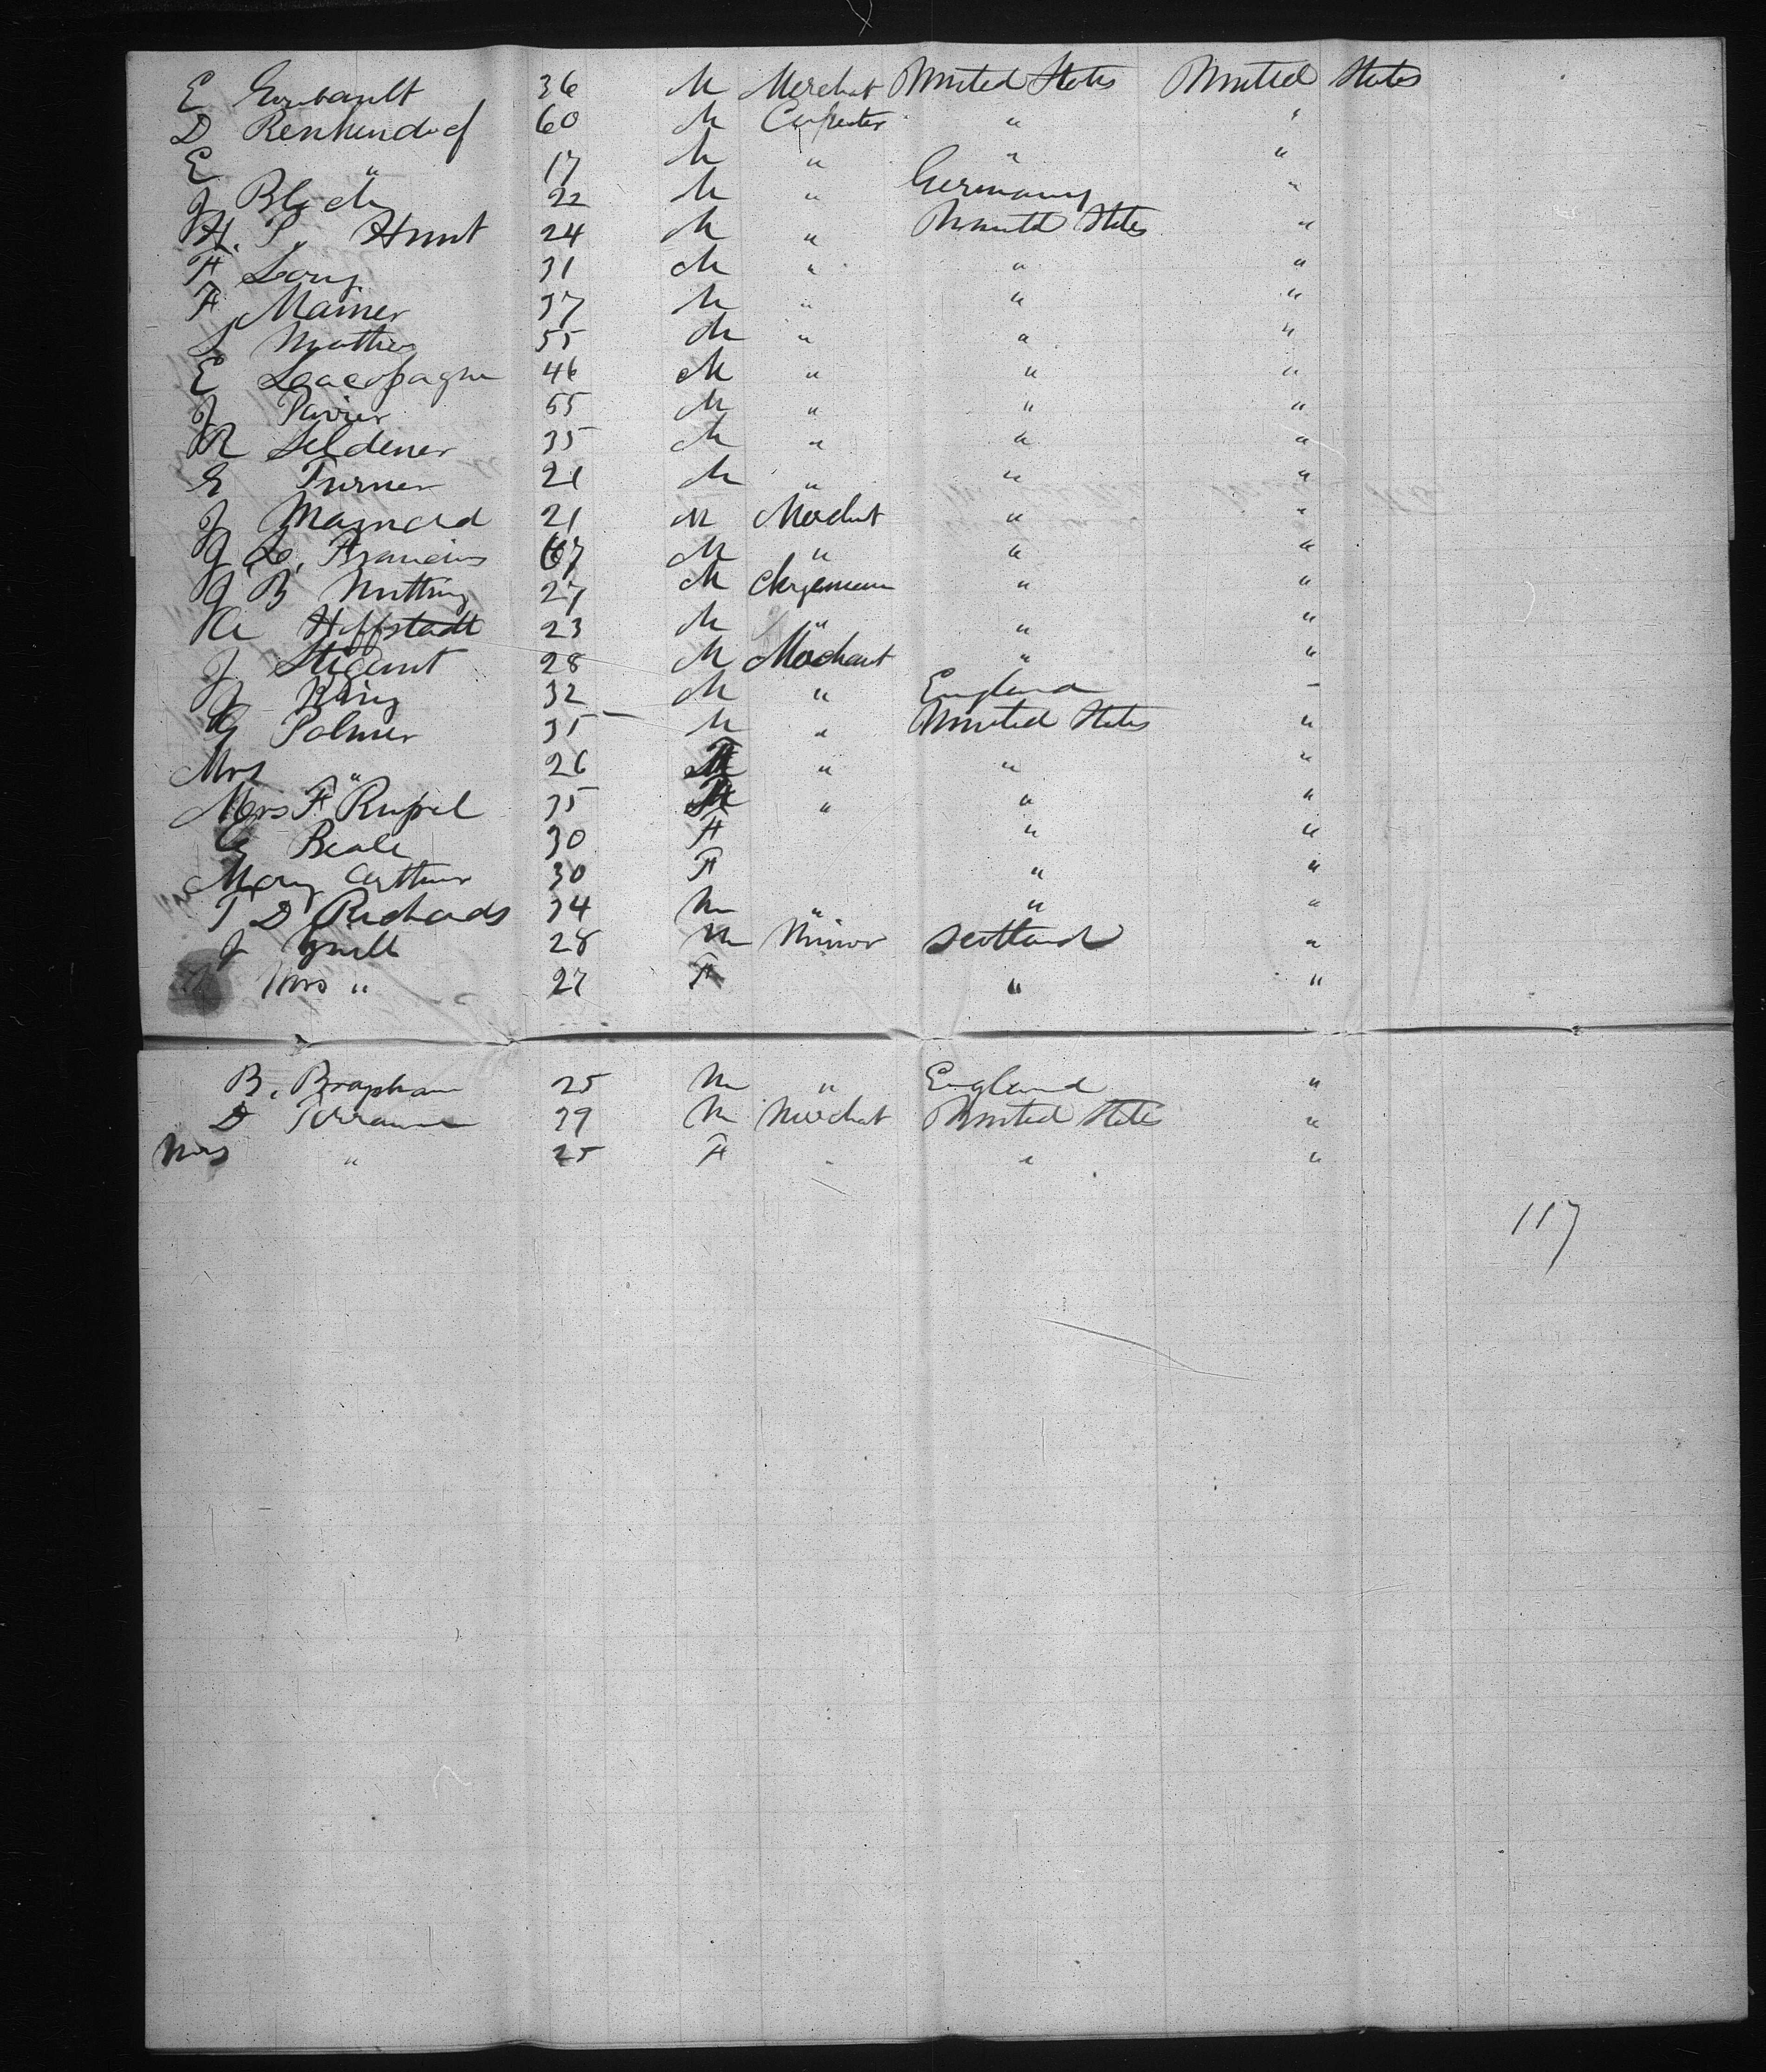 E 36 M Merchat United States United States
D Renkendorf 60 M Carpenter " "
E " 17 M " " "
J Bloch 22 M " Germany "
H. P. Hunt 24 M " United States "
F Long 31 M " " "
F Mainer 37 M " " "
S Mathes 55 M " " "
E 46 M " " "
J Pavier 55 M " " "
R Seldener 35 M " " "
E Turner 21 M " " "
J Maynard 21 M Mechat " "
J. L. Francis 67 M " " "
J B Nutting 27 M Clergeman " "
A Hoffstadt 23 M " " "
J 28 M Mechant " "
J King 32 M " England "
G Palmer 35 M " United States "
Mrs " 26 F " " "
Mrs F 35 F " " "
E Beale 30 F " "
Mary Arthur 30 F " "
T D Richards 34 M " " "
J 28 M Minor Scotland "
Mrs " 27 F " "
B. 25 M " England "
D 29 M Merchat United States "
Mrs " 25 F " " "
117